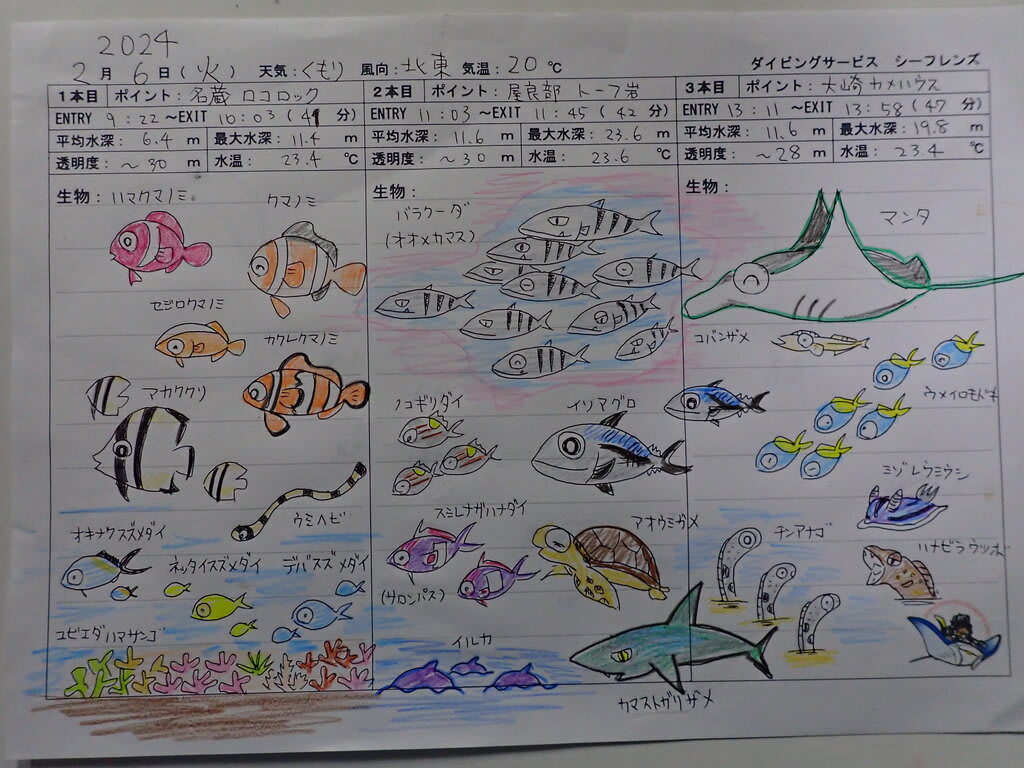 2024
2月 6日(火) 天気:くもり 風向:北東 気温:20℃ ダイビングサービス シーフレンズ
1本目 ポイント:名蔵 ロコロック
ENTRY 9:22 ~EXIT 10:03 (41 分)
平均水深: 6.4 m 最大水深: 11.4 m
透明度: ~30 m 水温: 23.4 ℃
生物:ハマクマノミ クマノミ
セジロクマノミ
カクレクマノミ
マカククリ
ウミヘビ
オキナワスズメダイ
ネッタイスズメダイ デバスズメダイ
ユビエダハマサンゴ
2本目 ポイント:屋良部 トーフ岩
ENTRY 11:03 ~EXIT 11:45 (42 分)
平均水深: 11.6 m 最大水深: 23.6 m
透明度: ~30 m 水温: 23.6 ℃
生物:
バラクーダ
(オオメカマス)
ノコギリダイ
イソマグロ
スミレナガハナダイ
アオウミガメ
(サロンパス)
イルカ
カマストガリザメ
3本目 ポイント:大崎 カメハウス
ENTRY 13:11 ~EXIT 13:58 (47 分)
平均水深: 11.6 m 最大水深: 19.8 m
透明度: ~28 m 水温: 23.4 ℃
生物:
マンタ
コバンザメ
ウメイロモドキ
ミゾレウミウシ
チンアナゴ
ハナビラウツボ